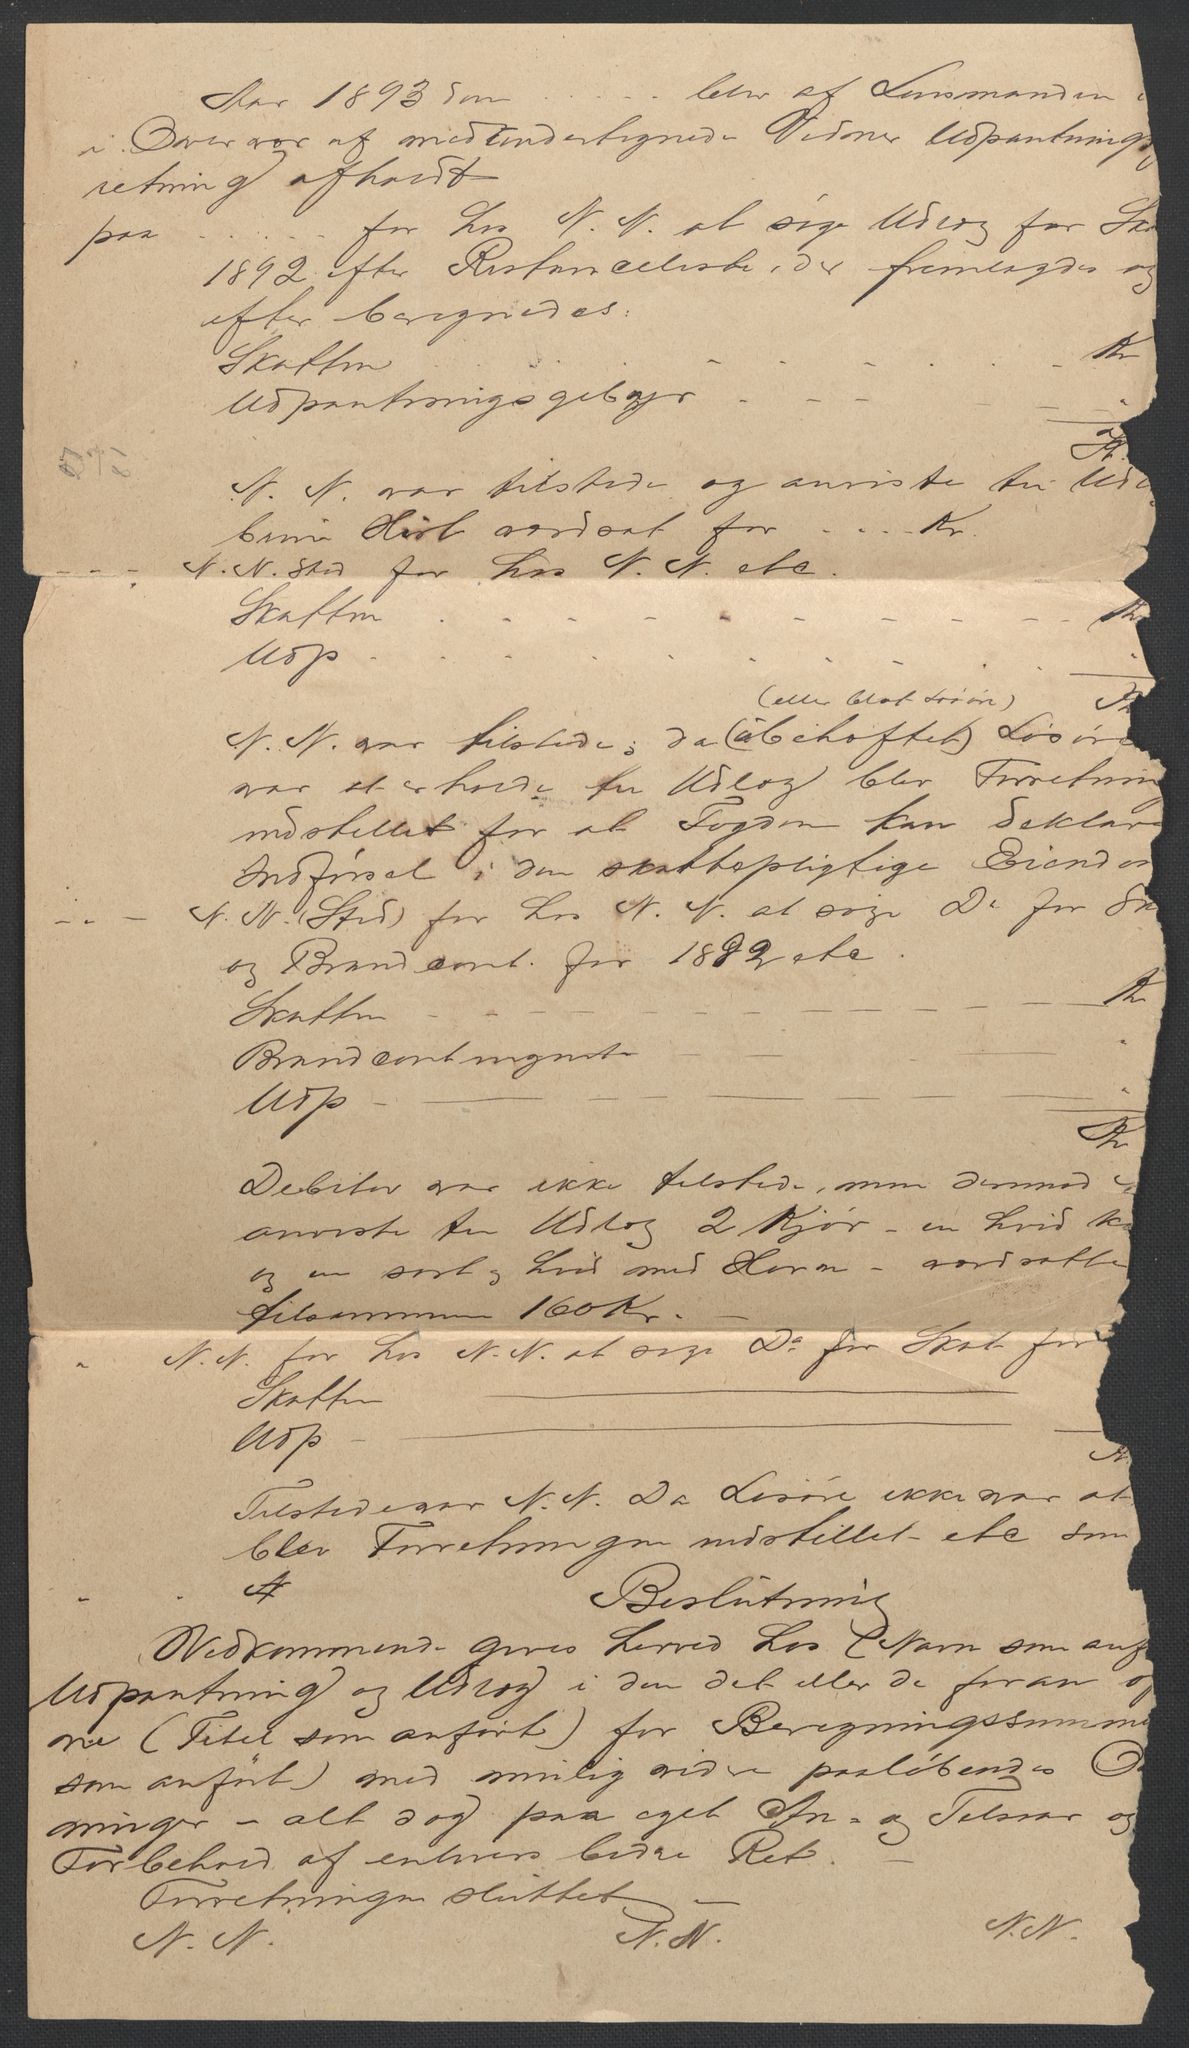 Aar 1893 den . . . . . blev af Lensmanden
i Overvær af medundertegnede Vidner Udpantnings
retning afholdt
paa . . . . . for hos N. N. at søge Udlæg for Ska
1892 efter Restanceliste, der fremlagdes og
efter beregnedes:
Skatten . . . . . . . . . . Kr
Udpantningsgebyr . - - - - - "
Kr.
N. N. var tilstede og anviste til Udl
brun Hest værdsat for . . . . Kr.
- - - N. N. Sted for hos N. N. etc.
Skatten . - - - - - - - - - - Kr
Udp . . . . . . . . . . "
(eller blot Løsøre) Kr
N. N. var tilstede; da (ubeheftet) Løsøre
var at erholde til Udlæg blev Forretning
indstillet for at Fogden kan deklar
Indførsel i den skattepligtige Eiendo
- " - N. N. (Sted) for hos N. N. at søge Do for Sk
og Brandcont. for 1892 etc.
Skatten - - - - - - - - - - - Kr
Brandcontingent - - - - - "
Udp - - - - - - - "
Kr
Debitor var ikke tilstede, men derimod
anviste til Udlæg 2 Kjør - en hvid k
og en sort & hvid med Horn - værdsatte
tilsammen 160 Kr. -
" N. N. for hos N. N. at søge Do for Skat for
Skatten
Udp -
K
Tilstede var N. N. Da Løsøre ikke var at
blev Forretningen indstillet - etc som
" "
Beslutning
Vedkommende gives herved hos (Navn som anf
Udpantning og Udlæg i den det eller de foran op
ne (Titel som anført) for Beregningssumme
som anført) med mulig videre paaløbende O
ninger - alt dog paa eget An- og Tilsvar og
Forbehold af enhvers bedre Ret. -
Forretningen sluttet -
N. N. N. N. N. N.